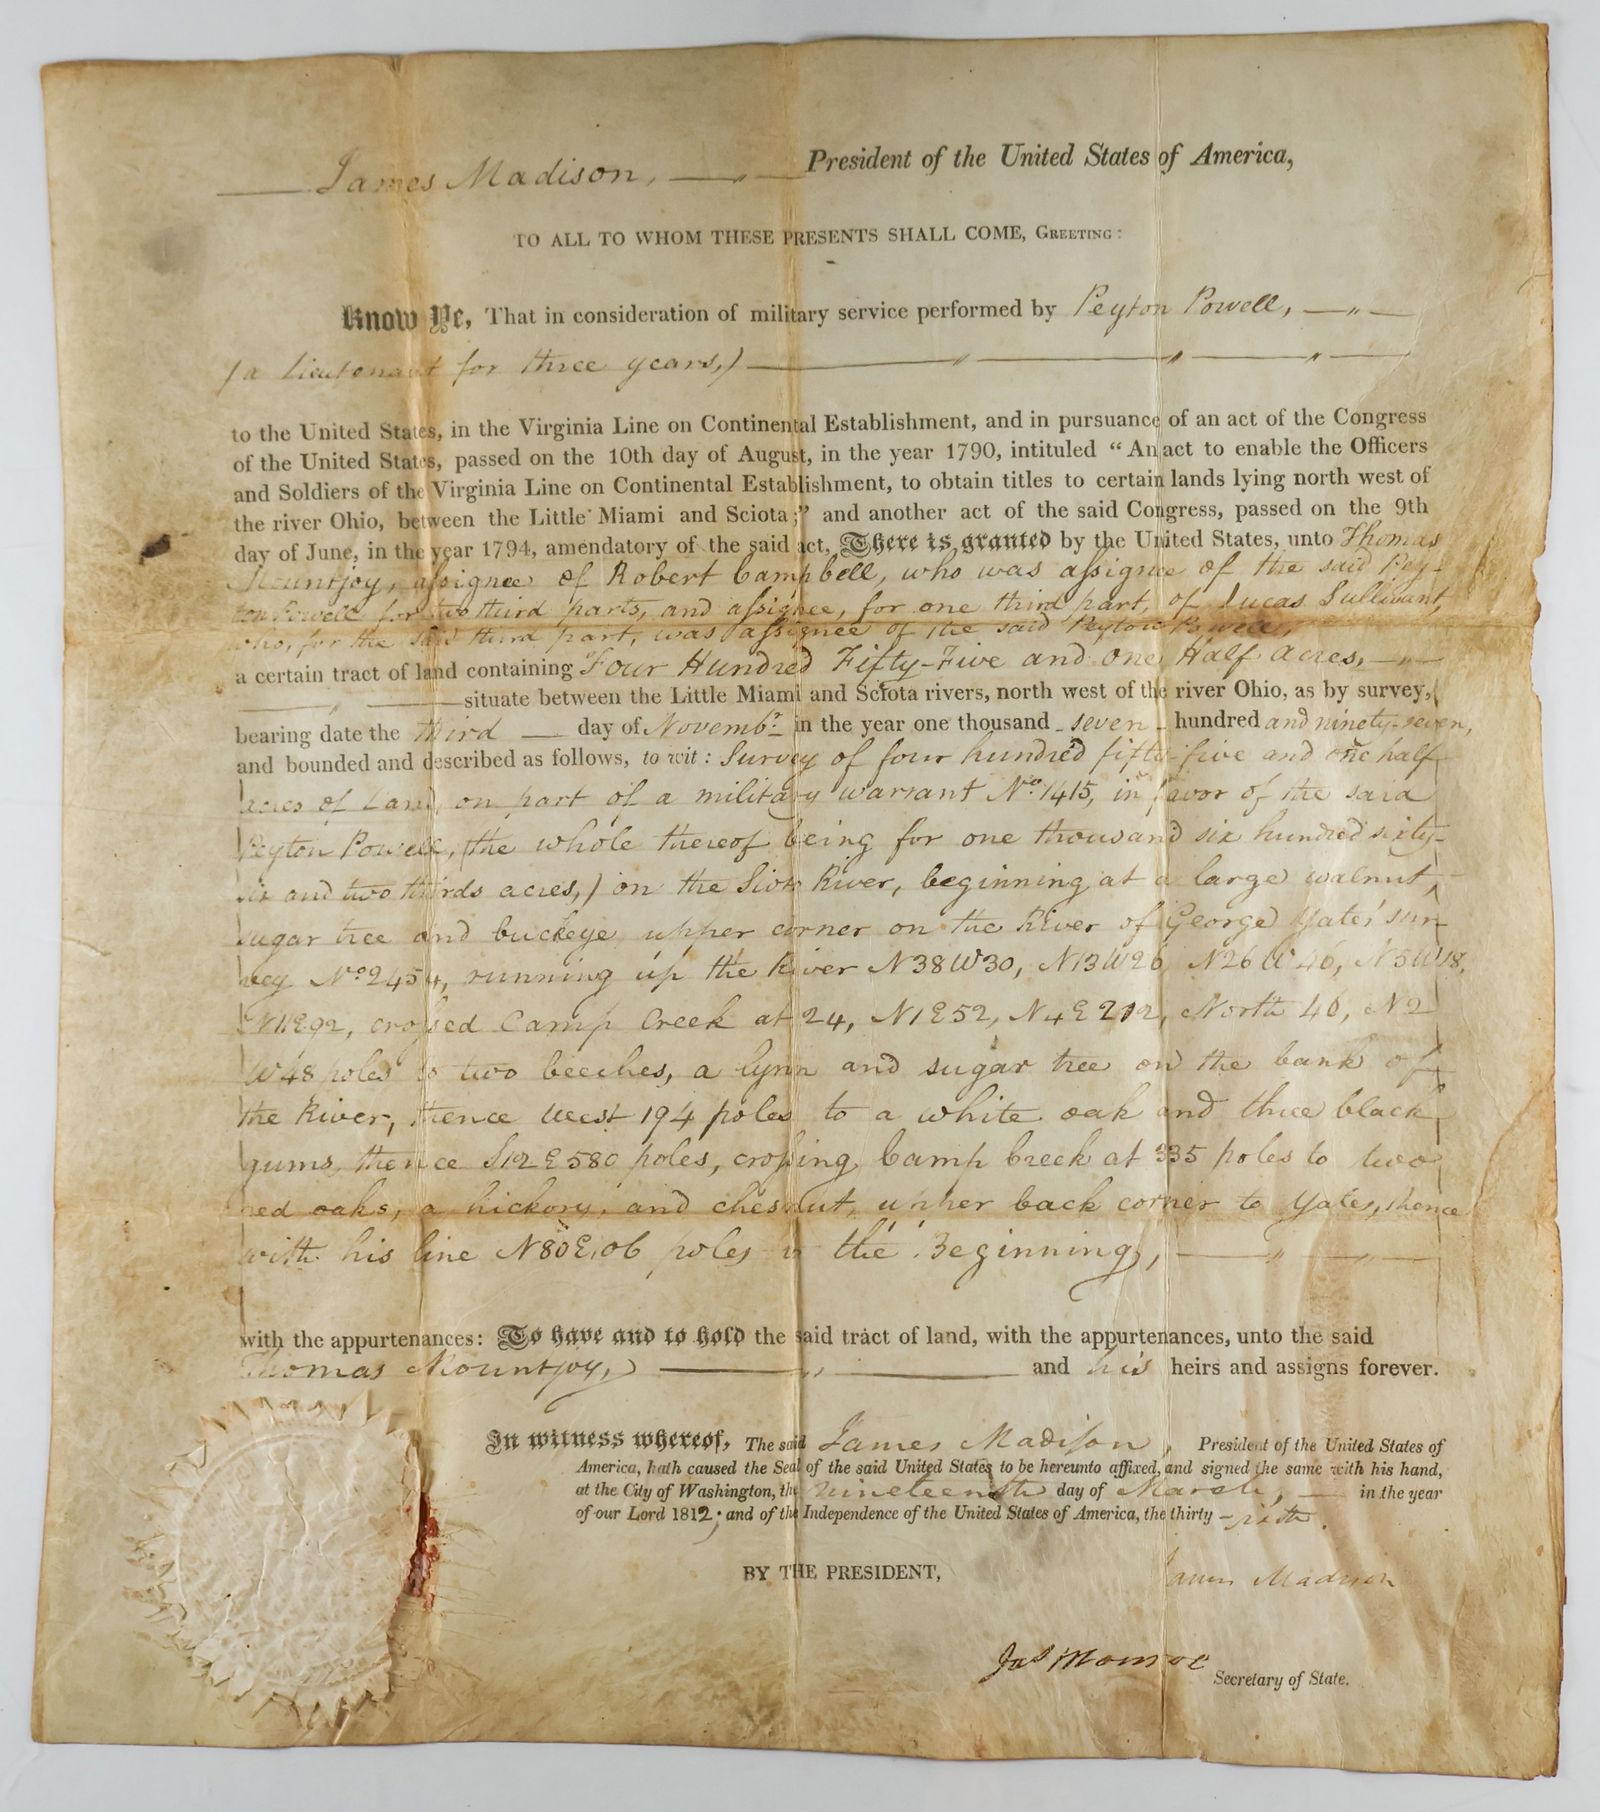 James Madison, President of the United States of America,
TO ALL TO WHOM THESE PRESENTS SHALL COME, GREETING:
Know Ye, That in consideration of military service performed by Peyton Powell,
(a lieutenant for three years,)
to the United States, in the Virginia Line on Continental Establishment, and in pursuance of an act of the Congress
of the United States, passed on the 10th day of August, in the year 1790, intituled “An act to enable the Officers
and Soldiers of the Virginia Line on Continental Establishment, to obtain titles to certain lands lying north west of
the river Ohio, between the Little Miami and Sciota;” and another act of the said Congress, passed on the 9th
day of June, in the year 1794, amendatory of the said act, There is granted by the United States, unto Thomas
Mountjoy, assignee of Robert Campbell, who was assignee of the said Pey-
ton Powell for two third parts, and assignee, for one third part, of Lucas Sullivant,
who, for the said third part, was assignee of the said Peyton Powell,
a certain tract of land containing Four Hundred Fifty-Five and One Half acres,
situate between the Little Miami and Sciota rivers, north west of the river Ohio, as by survey,
bearing date the third day of Novembr. in the year one thousand seven hundred and ninety-seven,
and bounded and described as follows, to wit: Survey of four hundred fifty-five and one half
acres of Land, on part of a military warrant No. 1415, in favor of the said
Peyton Powell, (the whole thereof being for one thousand six hundred sixty-
six and two thirds acres,) on the Sioto River, beginning at a large walnut,
sugar tree and buckeye upper corner on the River of George Yates' sur
vey No. 2454, running up the River N38W30, N13W26, N26W46, N5W18,
N11E92, crossed Camp Creek at 24, N1E52, N4E212, North 46, N2
W48 poles to two beeches, a lynn and sugar tree on the bank of
the River, thence West 194 poles to a white oak and three black
gums, thence S12E580 poles, crossing Camp Creek at 335 poles to two
red oaks, a hickory, and chesnut, upper back corner to Yates, thence
with his line N80E106 poles to the Beginning,
with the appurtenances: To have and to hold the said tract of land, with the appurtenances, unto the said
Thomas Mountjoy, and his heirs and assigns forever.
In witness whereof, The said James Madison, President of the United States of
America, hath caused the Seal of the said United States to be hereunto affixed, and signed the same with his hand,
at the City of Washington, the nineteenth day of March, in the year
of our Lord 1812; and of the Independence of the United States of America, the thirty-sixth.
BY THE PRESIDENT,
James Madison
Jas Monroe
Secretary of State.